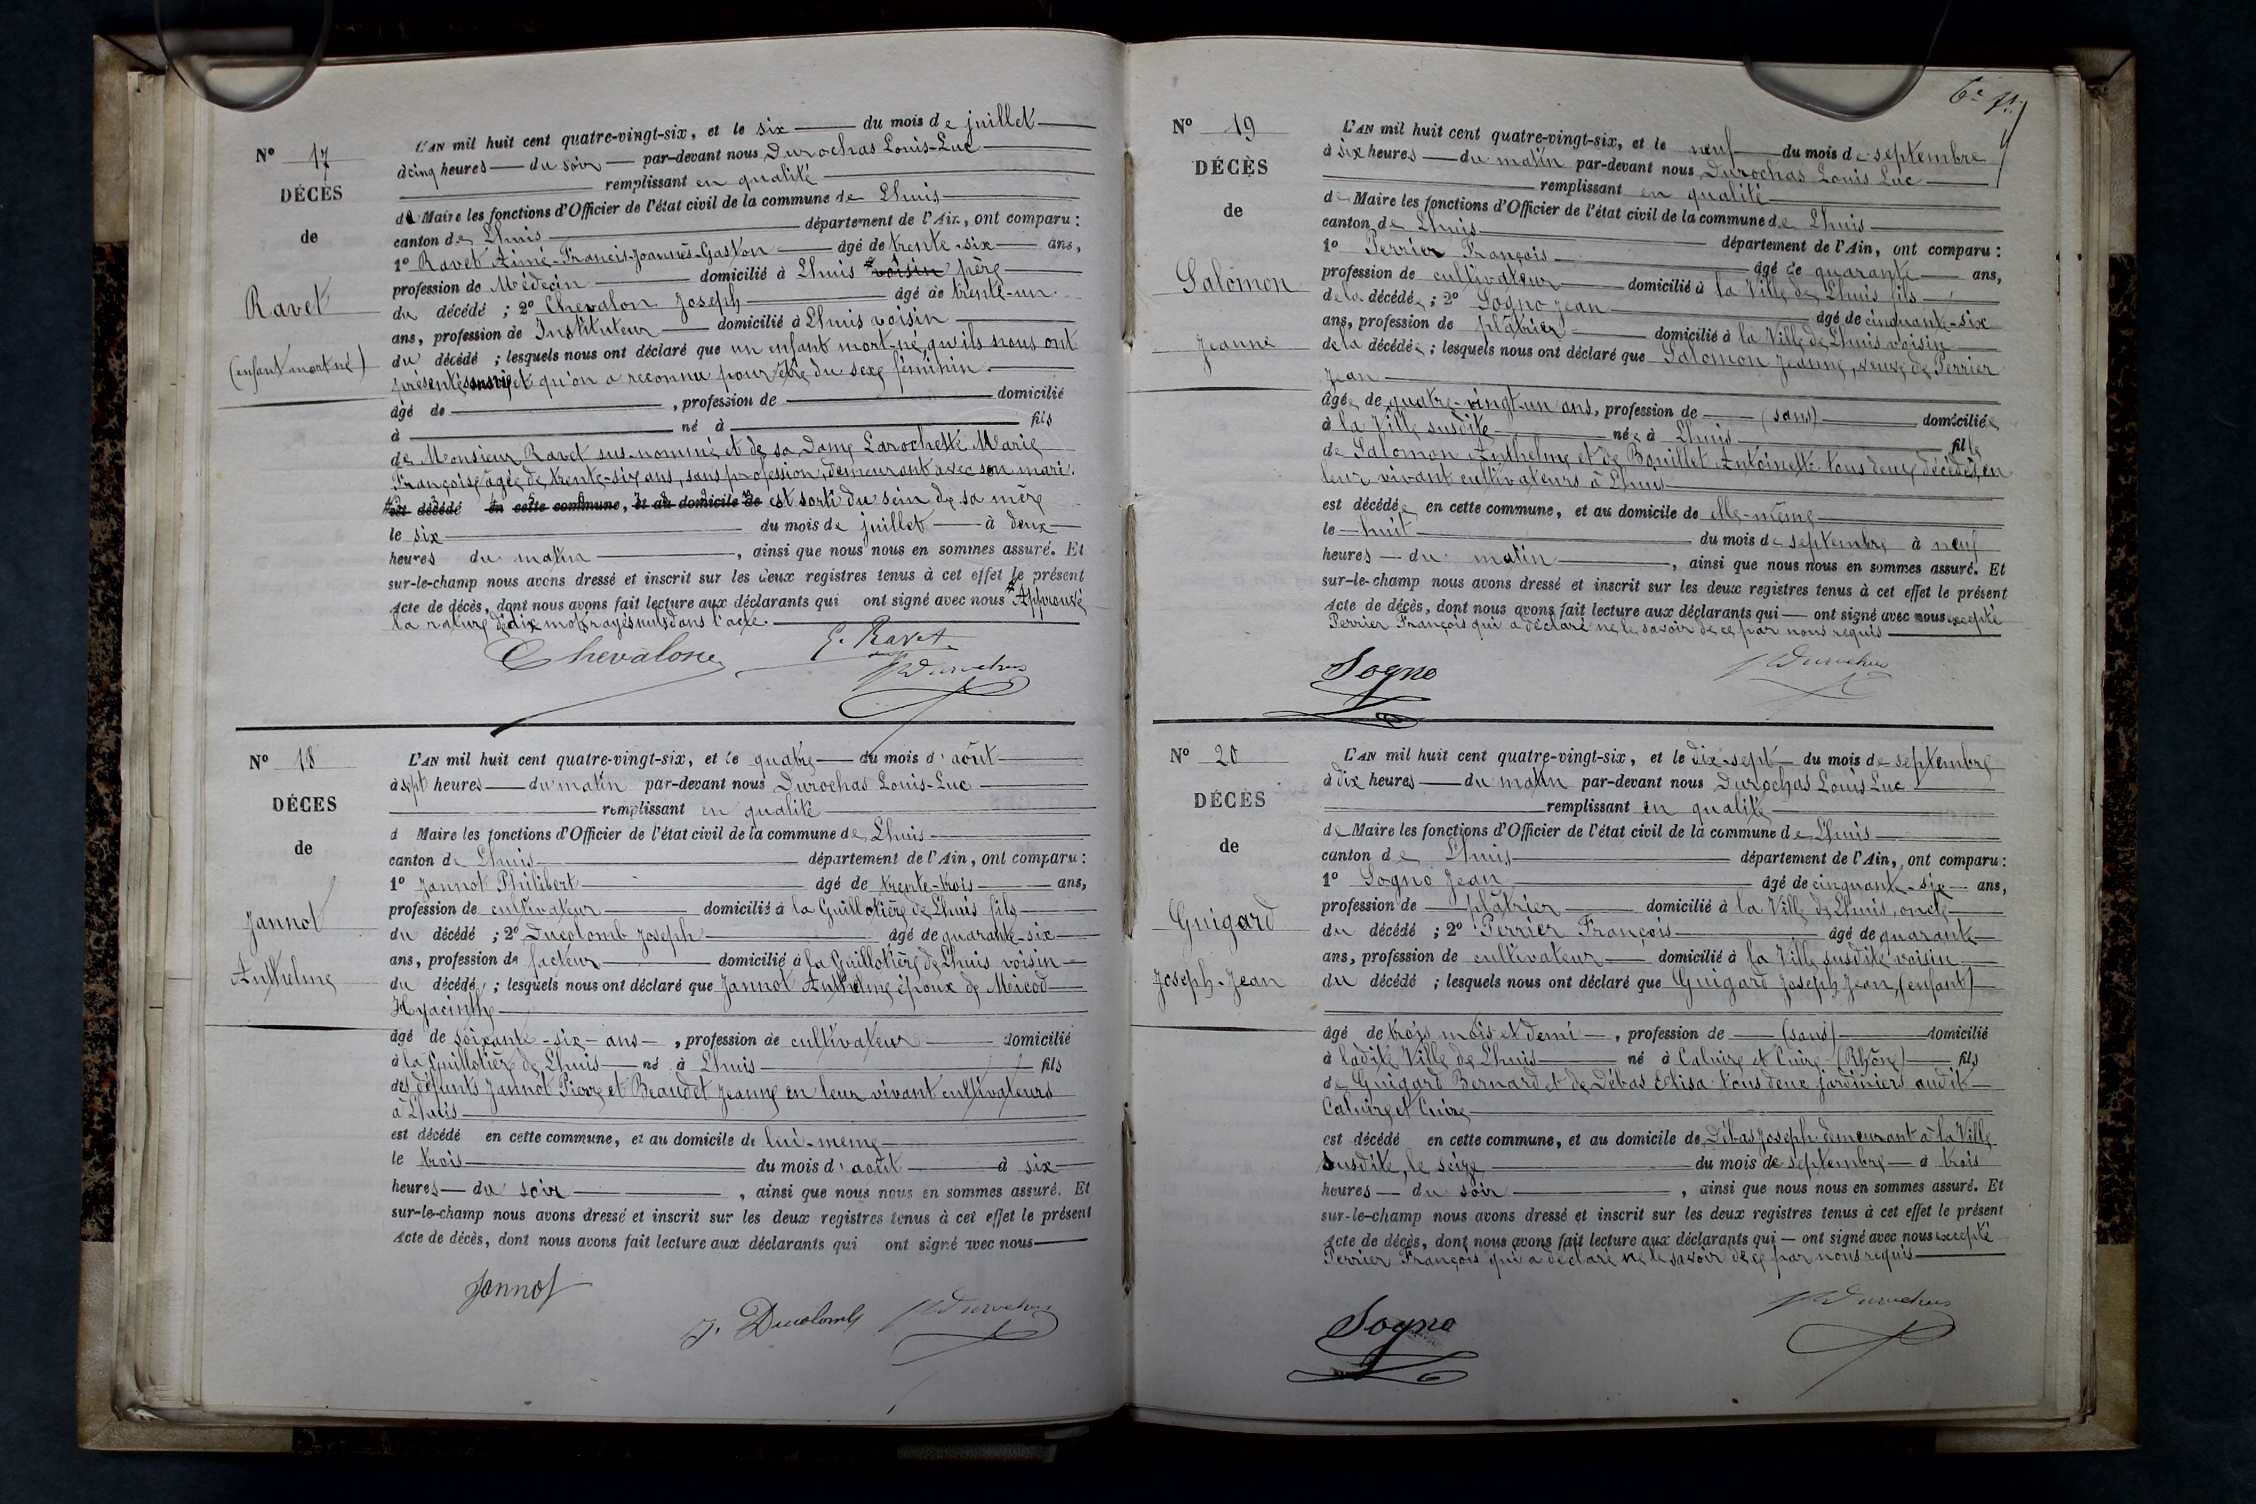 N° 17
DÉCÈS
de
Ravet
(enfant mort né)
L'AN mil huit cent quatre-vingt-six, et le six du mois de juillet
à cinq heures du soir par-devant nous Durochas Louis-Luc
remplissant en qualité
de Maire les fonctions d'Officier de l'état civil de la commune de Lhuis
canton de Lhuis département de l'Ain, ont comparu :
1° Ravet Aimé-Francis-Joannès-Gaston âgé de trente-six ans,
profession de Médecin domicilié à Lhuis voisin père
du décédé ; 2° Chevalon Joseph âgé de trente-un
ans, profession de Instituteur domicilié à Lhuis voisin
du décédé ; lesquels nous ont déclaré que un enfant mort-né, qu'ils nous ont
présenté et qu'on a reconnu pour être du sexe féminin.
âgé de , profession de domicilié
à né à fils
de Monsieur Ravet sus-nommé et de sa Dame Larochette Marie
Françoise âgée de trente-six ans, sans profession, demeurant avec son mari.
est décédé en cette commune, et au domicile de est sorti du sein de sa mère
le six du mois de juillet à deux
heures du matin , ainsi que nous nous en sommes assuré. Et
sur-le-champ nous avons dressé et inscrit sur les deux registres tenus à cet effet le présent
Acte de décès, dont nous avons fait lecture aux déclarants qui ont signé avec nous Approuvé
la rature de dix mots rayés nuls dans l'acte.
Chevalon G. Ravet
Durochas
N° 18
DÉCES
de
Jannot
Anthelme
L'AN mil huit cent quatre-vingt-six, et le quatre du mois d'août
à sept heures du matin par-devant nous Durochas Louis-Luc
remplissant en qualité
d Maire les fonctions d'Officier de l'état civil de la commune de Lhuis
canton de Lhuis département de l'Ain, ont comparu :
1° Jannot Philibert âgé de trente-trois ans,
profession de cultivateur domicilié à la Guillotière de Lhuis fils
du décédé ; 2° Ducolomb Joseph âgé de quarante-six
ans, profession de facteur domicilié à la Guillotière de Lhuis voisin
du décédé ; lesquels nous ont déclaré que Jannot Anthelme époux de Meicod
Hyacinthe
âgé de soixante-six-ans , profession de cultivateur domicilié
à la Guillotière de Lhuis né à Lhuis fils
des défunts Jannot Pierre et Beaudet Jeanne en leur vivant cultivateurs
à Lhuis
est décédé en cette commune, et au domicile de lui-même
le trois du mois d'août à six
heures du soir , ainsi que nous nous en sommes assuré. Et
sur-le-champ nous avons dressé et inscrit sur les deux registres tenus à cet effet le présent
Acte de décès, dont nous avons fait lecture aux déclarants qui ont signé avec nous
Jannot
J. Ducolomb Durochas
N° 19
DÉCÈS
de
Salomon
Jeanne
L'AN mil huit cent quatre-vingt-six, et le neuf du mois de septembre
à six heures du matin par-devant nous Durochas Louis Luc
remplissant en qualité
de Maire les fonctions d'Officier de l'état civil de la commune de Lhuis
canton de Lhuis département de l'Ain, ont comparu :
1° Perrier François âgé de quarante ans,
profession de cultivateur domicilié à la Ville de Lhuis fils
de la décédée ; 2° Sogno Jean âgé de cinquante-six
ans, profession de plâtrier domicilié à la Ville de Lhuis voisin
de la décédée ; lesquels nous ont déclaré que Salomon Jeanne, veuve de Perrier
Jean
âgée de quatre-vingt-un ans, profession de (sans) domiciliée
à la Ville susdite née à Lhuis fille
de Salomon Anthelme et de Bouillet Antoinette tous deux décédés, en
leur vivant cultivateurs à Lhuis
est décédée en cette commune, et au domicile de elle-même
le huit du mois de septembre à neuf
heures du matin , ainsi que nous nous en sommes assuré. Et
sur-le-champ nous avons dressé et inscrit sur les deux registres tenus à cet effet le présent
Acte de décès, dont nous avons fait lecture aux déclarants qui ont signé avec nous excepté
Perrier François qui a déclaré ne le savoir de ce par nous requis
Sogno Durochas
N° 20
DÉCÈS
de
Guigard
Joseph-Jean
L'AN mil huit cent quatre-vingt-six, et le dix-sept du mois de septembre
à dix heures du matin par-devant nous Durochas Louis Luc
remplissant en qualité
de Maire les fonctions d'Officier de l'état civil de la commune de Lhuis
canton de Lhuis département de l'Ain, ont comparu :
1° Sogno Jean âgé de cinquante-six ans,
profession de plâtrier domicilié à la Ville de Lhuis, oncle
du décédé ; 2° Perrier François âgé de quarante
ans, profession de cultivateur domicilié à la Ville susdite voisin
du décédé ; lesquels nous ont déclaré que Guigard Joseph Jean, (enfant)
âgé de trois mois et demi , profession de (sans) domicilié
à ladite Ville de Lhuis né à Caluire et Cuire (Rhône) fils
de Guigard Bernard et de Débas Elisa tous deux jardiniers audit
Caluire et Cuire
est décédé en cette commune, et au domicile de Débas Joseph demeurant à la Ville
susdite, le seize du mois de septembre à trois
heures du soir , ainsi que nous nous en sommes assuré. Et
sur-le-champ nous avons dressé et inscrit sur les deux registres tenus à cet effet le présent
Acte de décès, dont nous avons fait lecture aux déclarants qui ont signé avec nous excepté
Perrier François qui a déclaré ne le savoir de ce par nous requis
Sogno Durochas